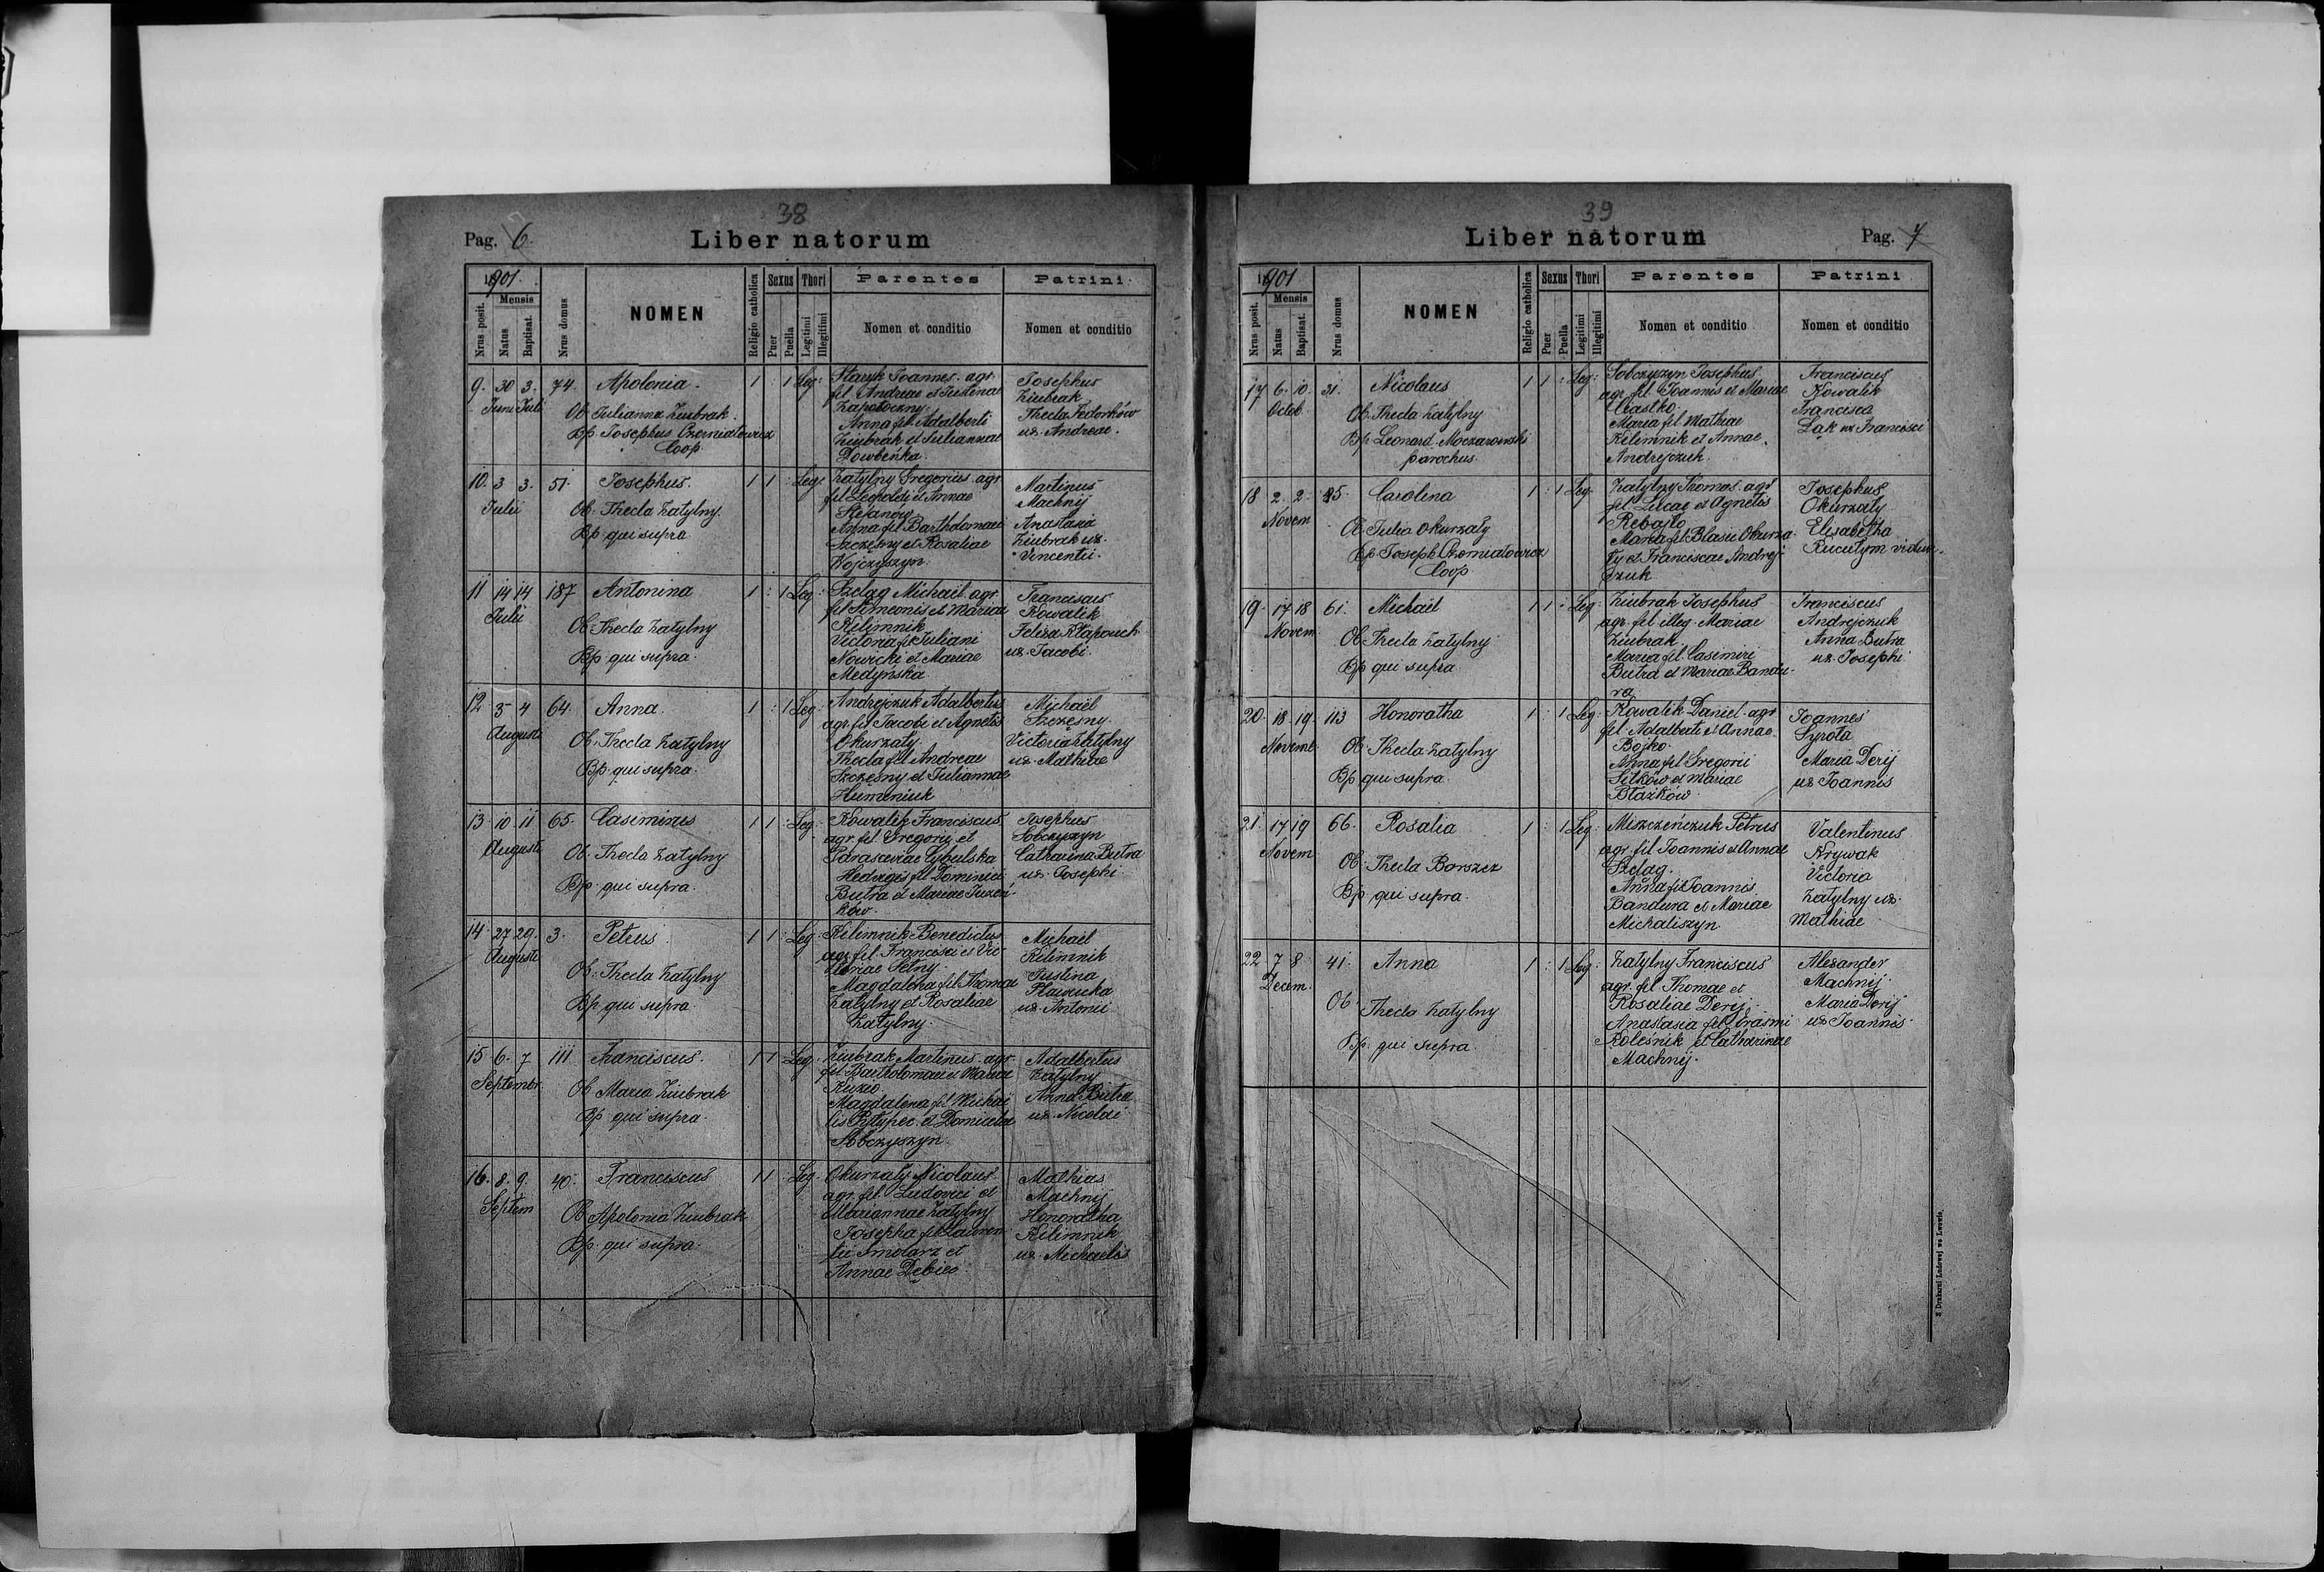 38
Pag. 6.
Liber natorum
1901.
Nrus posit.
Mensis
Natus
Baptisat.
Nrus domus
NOMEN
Religio catholica
Sexus
Puer
Puella
Thori
Legitimi
Illegitimi
Parentes
Nomen et conditio
Patrini
Nomen et conditio
9. 30 3. 74. Apolonia. 1 : 1 Leg:
Juni Juli
Ob. Julianna Ziubrak.
Bp. Josephus Czerniatowicz
Coop.
Staryk Joannes. agr.
fil. Andreae et Justinae
Zapotoczny
Anna fil. Adalberti
Ziubrak et Juliannae
Dowbeńka.
Josephus
Ziubrak
Thecla Fedorków
ux. Andreae.
10. 3 3. 51. Josephus. 1 1 : Leg:
Julii
Ob. Thecla Zatylny.
Bp. qui supra
Zatylny Gregorius agr.
fil Leopoldi et Annae
Stefanów
Anna fil Bartholomaei
Szczęsny et Rosaliae
Wojczyszyn.
Martinus
Machnij
Anastasia
Ziubrak ux.
Vincentii.
11 14 14 187 Antonina 1 : 1 Leg:
Julii
Ob Thecla Zatylny
Bp. qui supra.
Szeląg Michaël agr.
fil Simeonis et Mariae
Kilimnik
Victoria fil Juliani
Nowicki et Mariae
Medyńska
Franciscus
Kowalik
Felixa Kłapouch
ux. Jacobi.
12 3 4 64. Anna. 1 : 1 Leg:
Augusti
Ob. Thecla Zatylny
Bp. qui supra.
Andrejczuk Adalbertus
agr. fil Jacobi et Agnetis
Okurzały.
Thecla fil Andreae
Szczęsny et Juliannae
Humeniuk
Michaël
Szczęsny.
Victoria Zatylny
ux. Mathiae
13. 10. 11 65. Casimirus 1 1 : Leg:
Augusti
Ob. Thecla Zatylny
Bp. qui supra.
Kowalik Franciscus
agr. fil Gregorij et
Parasceviae Cybulska
Hedvigis fil Dominici
Butra et Mariae Juzeń-
ków.
Josephus
Sobczyszyn
Catharina Butra
ux. Josephi
14. 27 29. 3. Petrus. 1 1 : Leg.
Augusti
Ob. Thecla Zatylny
Bp. qui supra
Kilimnik Benedictus
agr. fil. Francisci et Vic
toriae Setny.
Magdalena fil Thomae
Zatylny et Rosaliae
Zatylny.
Michaël
Kilimnik
Justina
Pławucka
ux. Antonii
15 6. 7 111 Franciscus. 1 1 : Leg.
Septembr.
Ob Maria Ziubrak
Bp qui supra.
Ziubrak Martinus. agr.
fil Bartholomaei et Mariae
Kuzio
Magdalena fil Michae
lis Pytypec. et Domicelae
Sobczyszyn
Adalbertus
Zatylny
Anna Butra
ux. Nicolai
16. 8. 9. 40. Franciscus 1 1 : Leg.
Septem
Ob Apolonia Ziubrak
Bp. qui supra.
Okurzały Nicolaus
agr. fil. Ludovici et
Mariannae Zatylny
Josepha fil Lauren
tii Smolarz et
Annae Dębiec.
Mathias
Machnij
Honoratha
Kilimnik
ux. Michaelis
39
Liber natorum
Pag. 7
1901
Nrus posit.
Mensis
Natus
Baptisat.
Nrus domus
NOMEN
Religio catholica
Sexus
Puer
Puella
Thori
Legitimi
Illegitimi
Parentes
Nomen et conditio
Patrini
Nomen et conditio
17 6. 10. 31. Nicolaus 1 1 : Leg:
Octob.
Ob. Thecla Zatylny
Bp. Leonard. Moczarowski
parochus.
Sobczyszyn Josephus
agr. fil Joannis et Mariae
Ciastko.
Maria fil Mathiae
Kilimnik et Annae.
Andrejczuk.
Franciscus
Kowalik
Francisca
Łąk ux Francisci
18 2. 2. 85. Carolina 1 : 1 Leg.
Novem
Ob. Julia Okurzały
Bp Joseph Czerniatowicz
Coop
Zatylny Thomas. agr
fil. Lucae et Agnetis
Rebajło
Maria fil Blasii Okurza
ły et Franciscae Andrej
czuk
Josephus
Okurzały
Elisabetha
19. 17 18 61. Michaël 1 1 : Leg:
Novem
Ob. Thecla Zatylny
Bp qui supra
Ziubrak Josephus
agr. fil illeg. Mariae
Ziubrak.
Maria fil. Casimiri
Butra et Mariae Bandu-
ra
Franciscus
Andrejczuk
Anna Butra
ux. Josephi
20. 18. 19. 113 Honoratha 1 : 1 Leg:
Novemb.
Ob. Thecla Zatylny
Bp qui supra.
Kowalik Daniel. agr
fil Adalberti et Annae
Bojko.
Anna fil Gregorii
Sitków et Mariae
Błażków.
Joannes
Syrota
Maria Derij
ux Joannis
21. 17 19 66. Rosalia 1 : 1 Leg:
Novem
Ob. Thecla Barszcz
Bp qui supra.
Miszczeńczuk Petrus
agr. fil Joannis et Annae
Szeląg.
Anna fil Joannis
Bandura et Mariae
Michaliszyn
Valentinus
Krywak
Victoria
Zatylny ux.
Mathiae
22 7 8 41. Anna 1 : 1 Leg:
Decem.
Ob. Thecla Zatylny
Bp. qui supra.
Zatylny Franciscus
agr. fil Thomae et
Rosaliae Derij.
Anastasia fil Erasmi
Koleśnik et Catharinae
Machnij.
Alexander
Machnij.
Maria Derij
ux Joannis
Z Drukarni Ludowej we Lwowie.